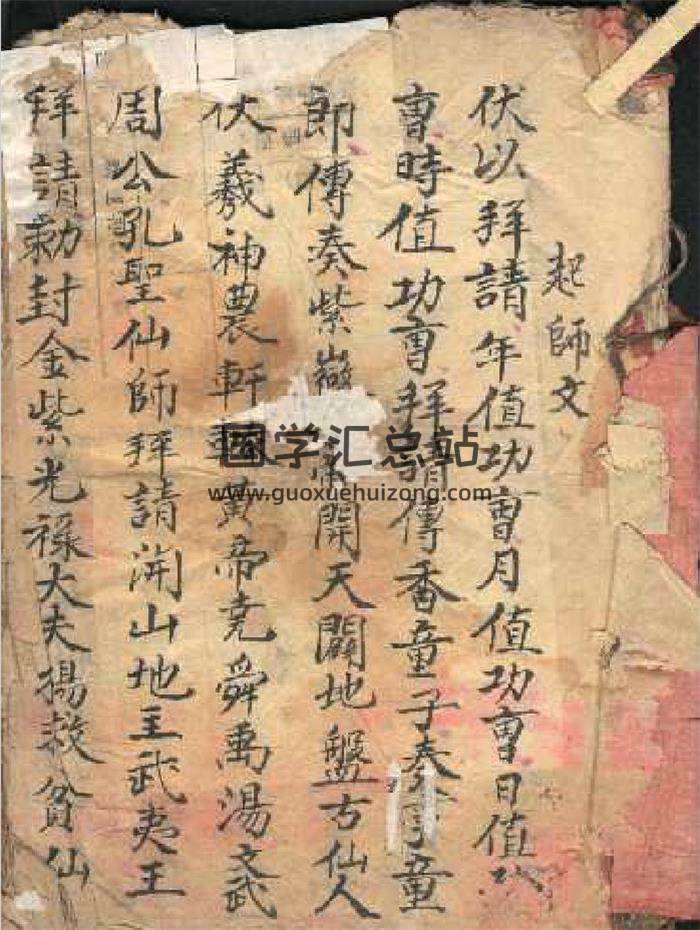 起師文
伏以拜請年值功曹月值功曹日值功
曹時值功曹拜請傳香童子奏事童
郎傳奏紫嶶帝開天闢地盤古仙人
伏羲神農軒轅黄帝尭舜禹湯文武
周公孔聖仙師拜請開山地主武夷王
拜請勅封金紫光祿大夫揚救貧仙
国学汇总站
www.guoxuehuizong.com